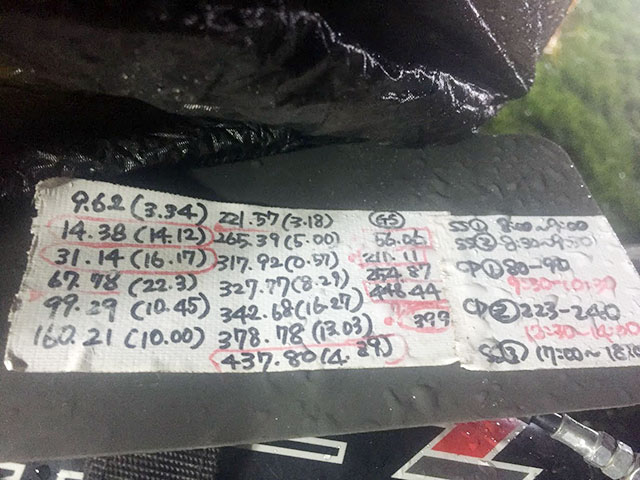 9.62 (3.34)
14.38 (14.12)
31.14 (16.17)
67.78 (22.3)
99.29 (10.45)
160.21 (10.00)
221.57 (3.18)
265.39 (5.00)
317.92 (0.57)
327.77 (8.29)
342.68 (16.27)
378.78 (13.03)
437.80 (4.29)
GS
56.06
211.11
254.87
448.44
399
SS① 8:00~9:00
SS② 8:30~9:30
CP① 80-90
9:30-10:30
CP② 223-240
12:30-14:00
SS③ 17:00~